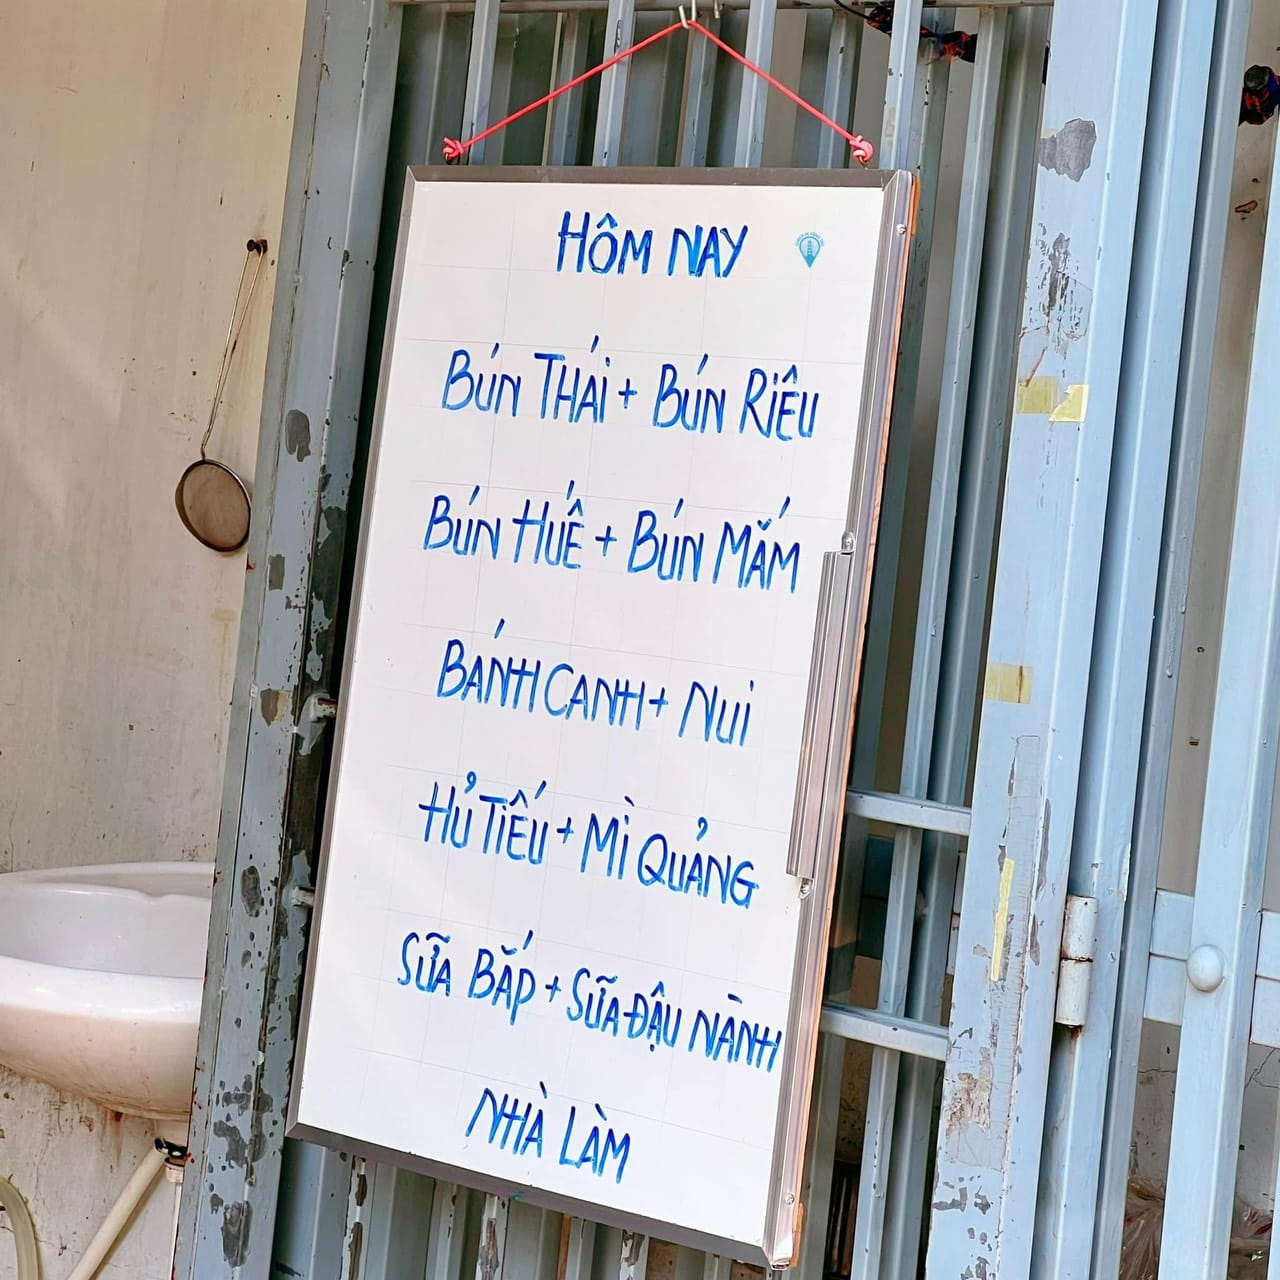 HÔM NAY
BÚN THÁI + BÚN RIÊU
BÚN HUẾ + BÚN MẮM
BÁNH CANH + NUI
HỦ TIẾU + MÌ QUẢNG
SỮA BẮP + SỮA ĐẬU NÀNH
NHÀ LÀM